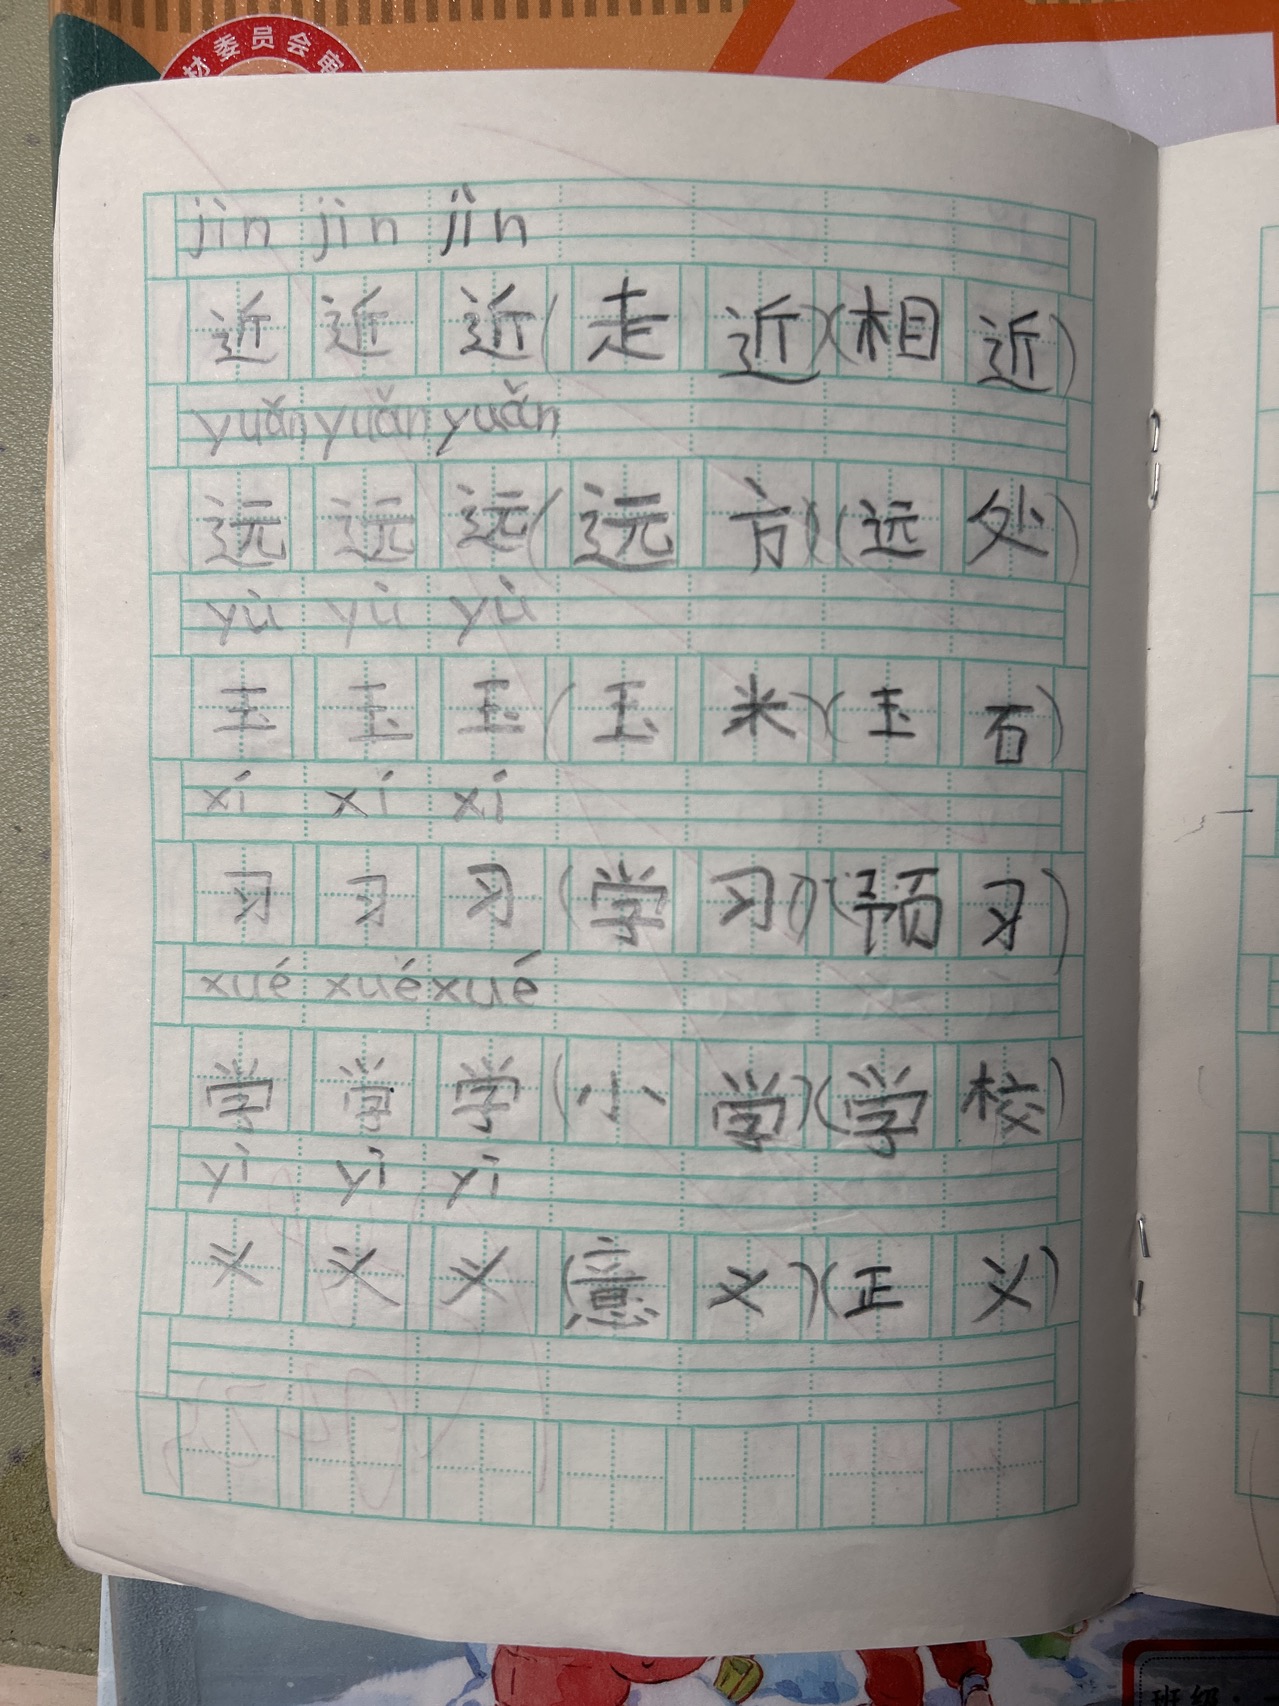 材委员会审
jìn jìn jìn
近近近(走近)(相近)
yuǎn yuǎn yuǎn
远远远(远方)(远处)
yù yù yù
玉玉玉(玉米)(玉石)
xí xí xí
习习习(学习)(预习)
xué xué xué
学学学(小学)(学校)
yì yì yì
义义义(意义)(正义)
班级